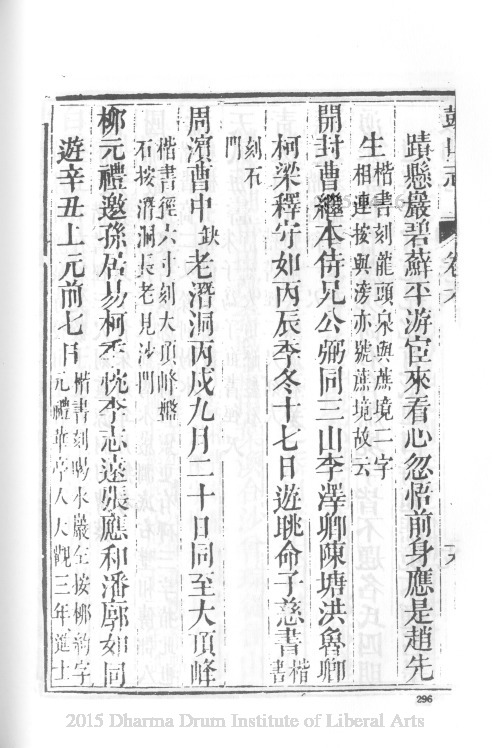 山志
卷六
蹟懸巖碧蘚平游宦來看心忽悟前身應是趙先
生
楷書刻龍頭泉與蔗境二字
相連按與滂亦號蔗境故云
開封曹繼本侍兄公弼同三山李澤卿陳塘洪魯卿
柯梁釋守如丙辰季冬十七日遊眺命子慈書
楷書
刻石
門
周濆曹中缺老潛洞丙戌九月二十日同至大頂峰
楷書徑六寸刻大頂峰盤
石按潛洞長老見沙門
柳元禮邀孫居易柯季悅李志遠張應和潘廓如同
遊辛丑上元前七日
楷書刻喝水巖全按柳韵字
元禮華亭人大觀三年進士
296
2015 Dharma Drum Institute of Liberal Arts